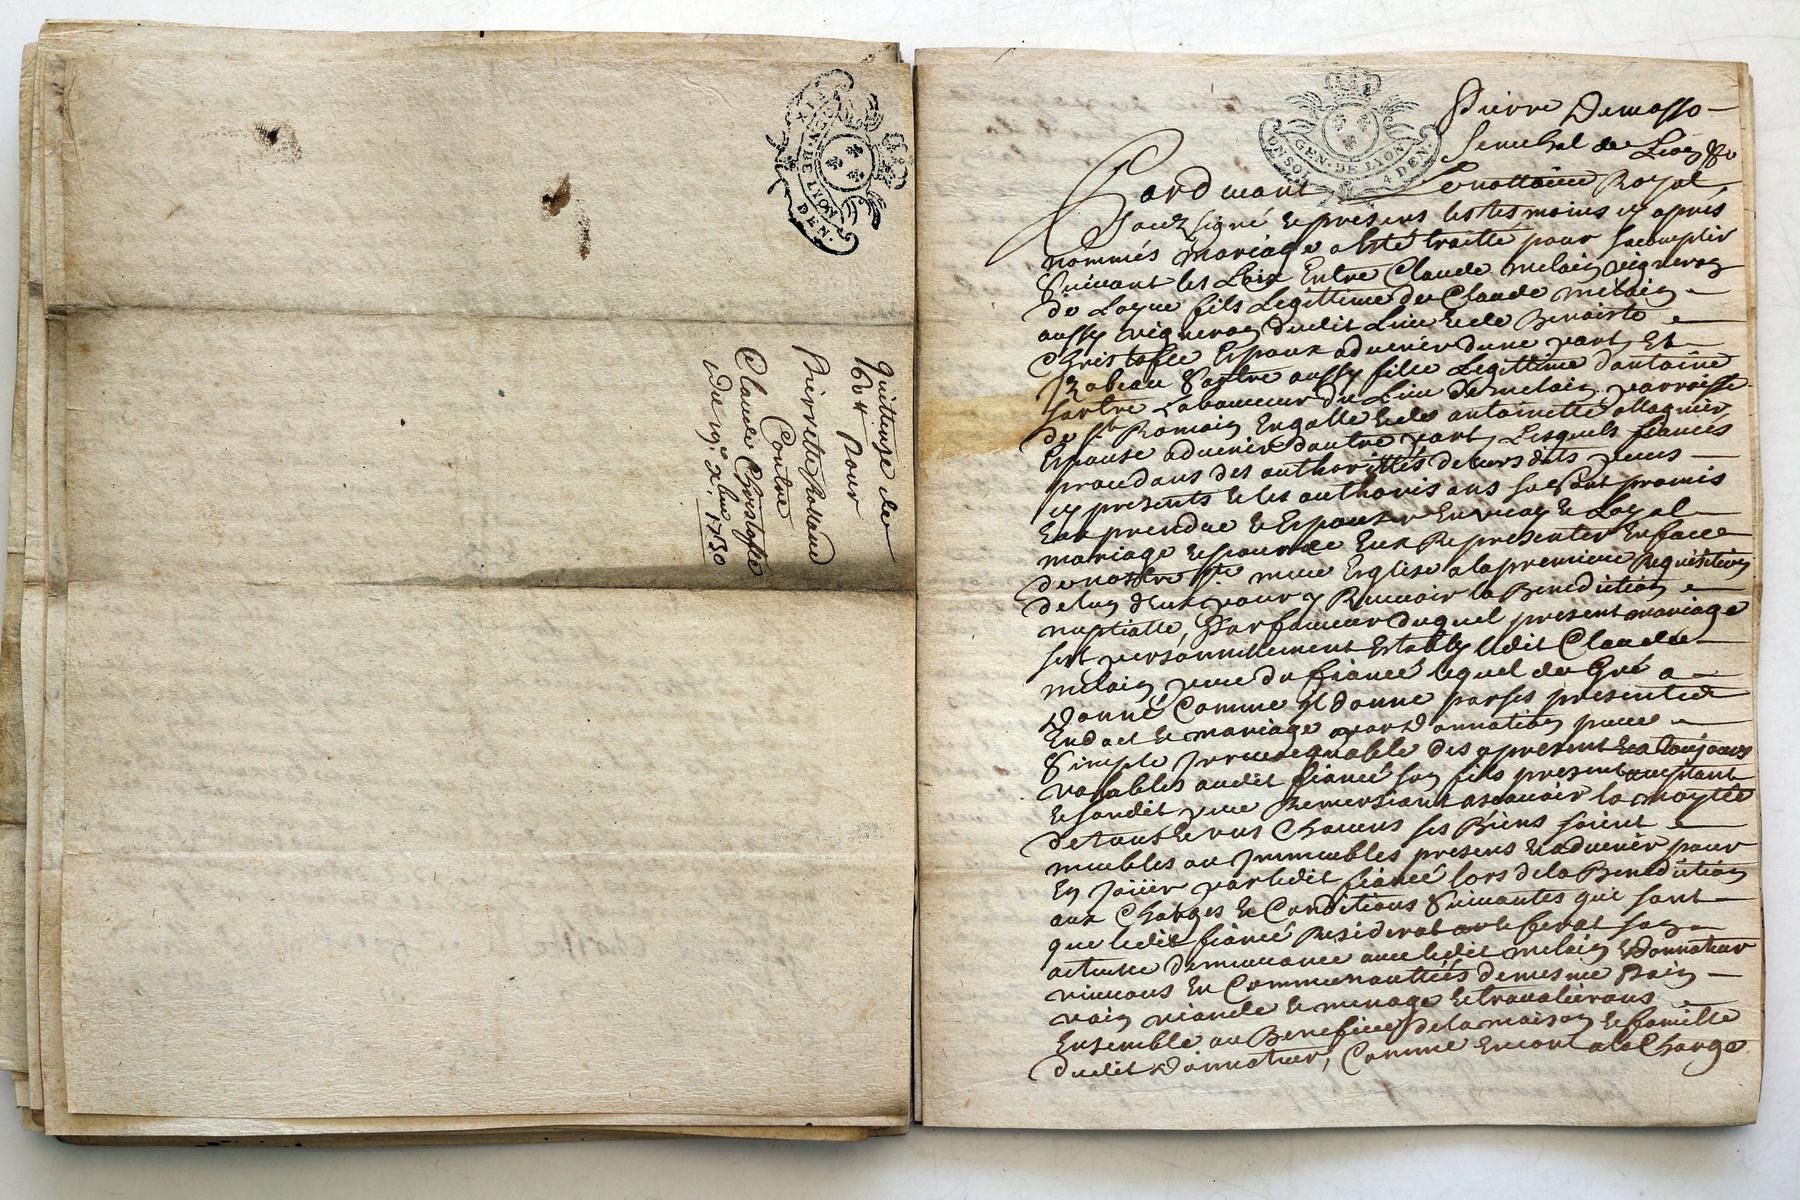 GEN·DE LYON
DEN.
Quittense de
164ᴸᴸ pour
Pierrette
Contre
Claude Christofle
Du 19ᵉ xbre 1730
GEN·DE LYON
4 DEN.
Pierre Demasso
Senechal de Lion &c
Pardevant Le nottaire Royal
Souzsigné & presens les tesmoins cy apres
nommés mariage a esté traitté pour sacomplir
Suivant les Loix Entre Claude melain vigneron
de fils Legittime de Claude melain
aussy vigneron dudit Lieu & de Benoiste
Christofle Espoux advenir dune part, Et
Izabeau Sartre aussy fille Legittime dantoine
Sartre Laboureur du Lieu de melain parroisse
de St Romain & de antoinette
Espouse advenir dautre part, Lesquels fiancés
procedans des authorittés de leurs dits peres
cy presents & les authorisans se sont promis
prendre & Espouser En vray & Loyal
mariage & pour ce Eux Representer En face
de nostre Ste mere Esglise a la premiere Requisition
de lun deux pour y Recevoir la Benediction
nuptialle, Par faveur duquel present mariage
sest personnellement Estably ledit Claude
melain pere du fiancé lequel de Gré a
Donné Comme Il donne par ses presentes
En dot & mariage par Donnation pure
Simple Irrevocquable des apresent & a toujours
vallables audit fiancé son fils present aceptant
& sondit pere Remersiant ascavoir la moytié
de tous & uns Chacuns ses Biens soient
meubles ou Immeubles presens & advenir pour
En Joüir par ledit fiancé lors de la Benediction
aux Charges & Conditions Suivantes qui sont
que ledit fiancé Residerat & ferat son
actuelle demeurance avec ledit melain Donnateur
vivans En Communauttés de mesme Pain
vain viande & menage & travalierons
Ensemble au Benefice de la maison & famille
dudit Donnateur, Comme Encore a la Charge